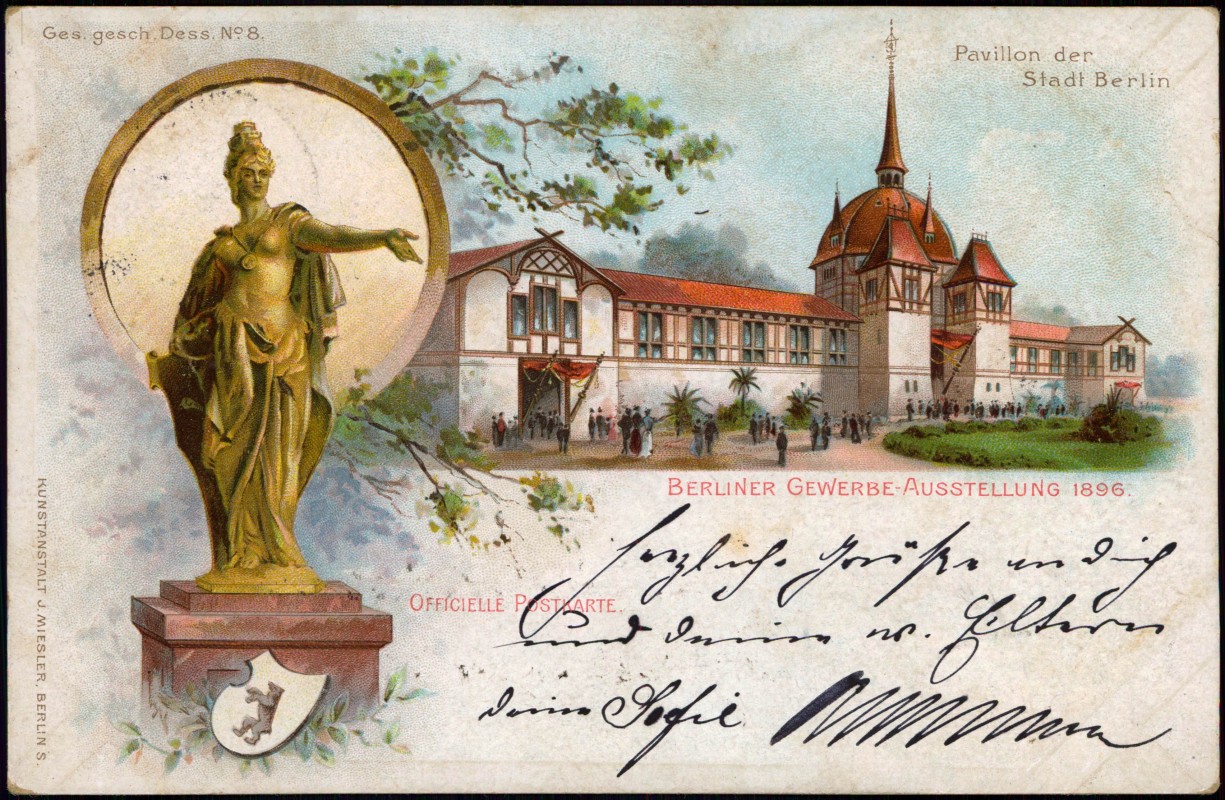 Ges. gesch. Dess. Nº 8.
Pavillon der
Stadt Berlin
BERLINER GEWERBE-AUSSTELLUNG 1896.
OFFICIELLE POSTKARTE.
herzliche Grüße an dich
und deine w. Eltern
deine
KUNSTANSTALT J. MIESLER, BERLIN S.